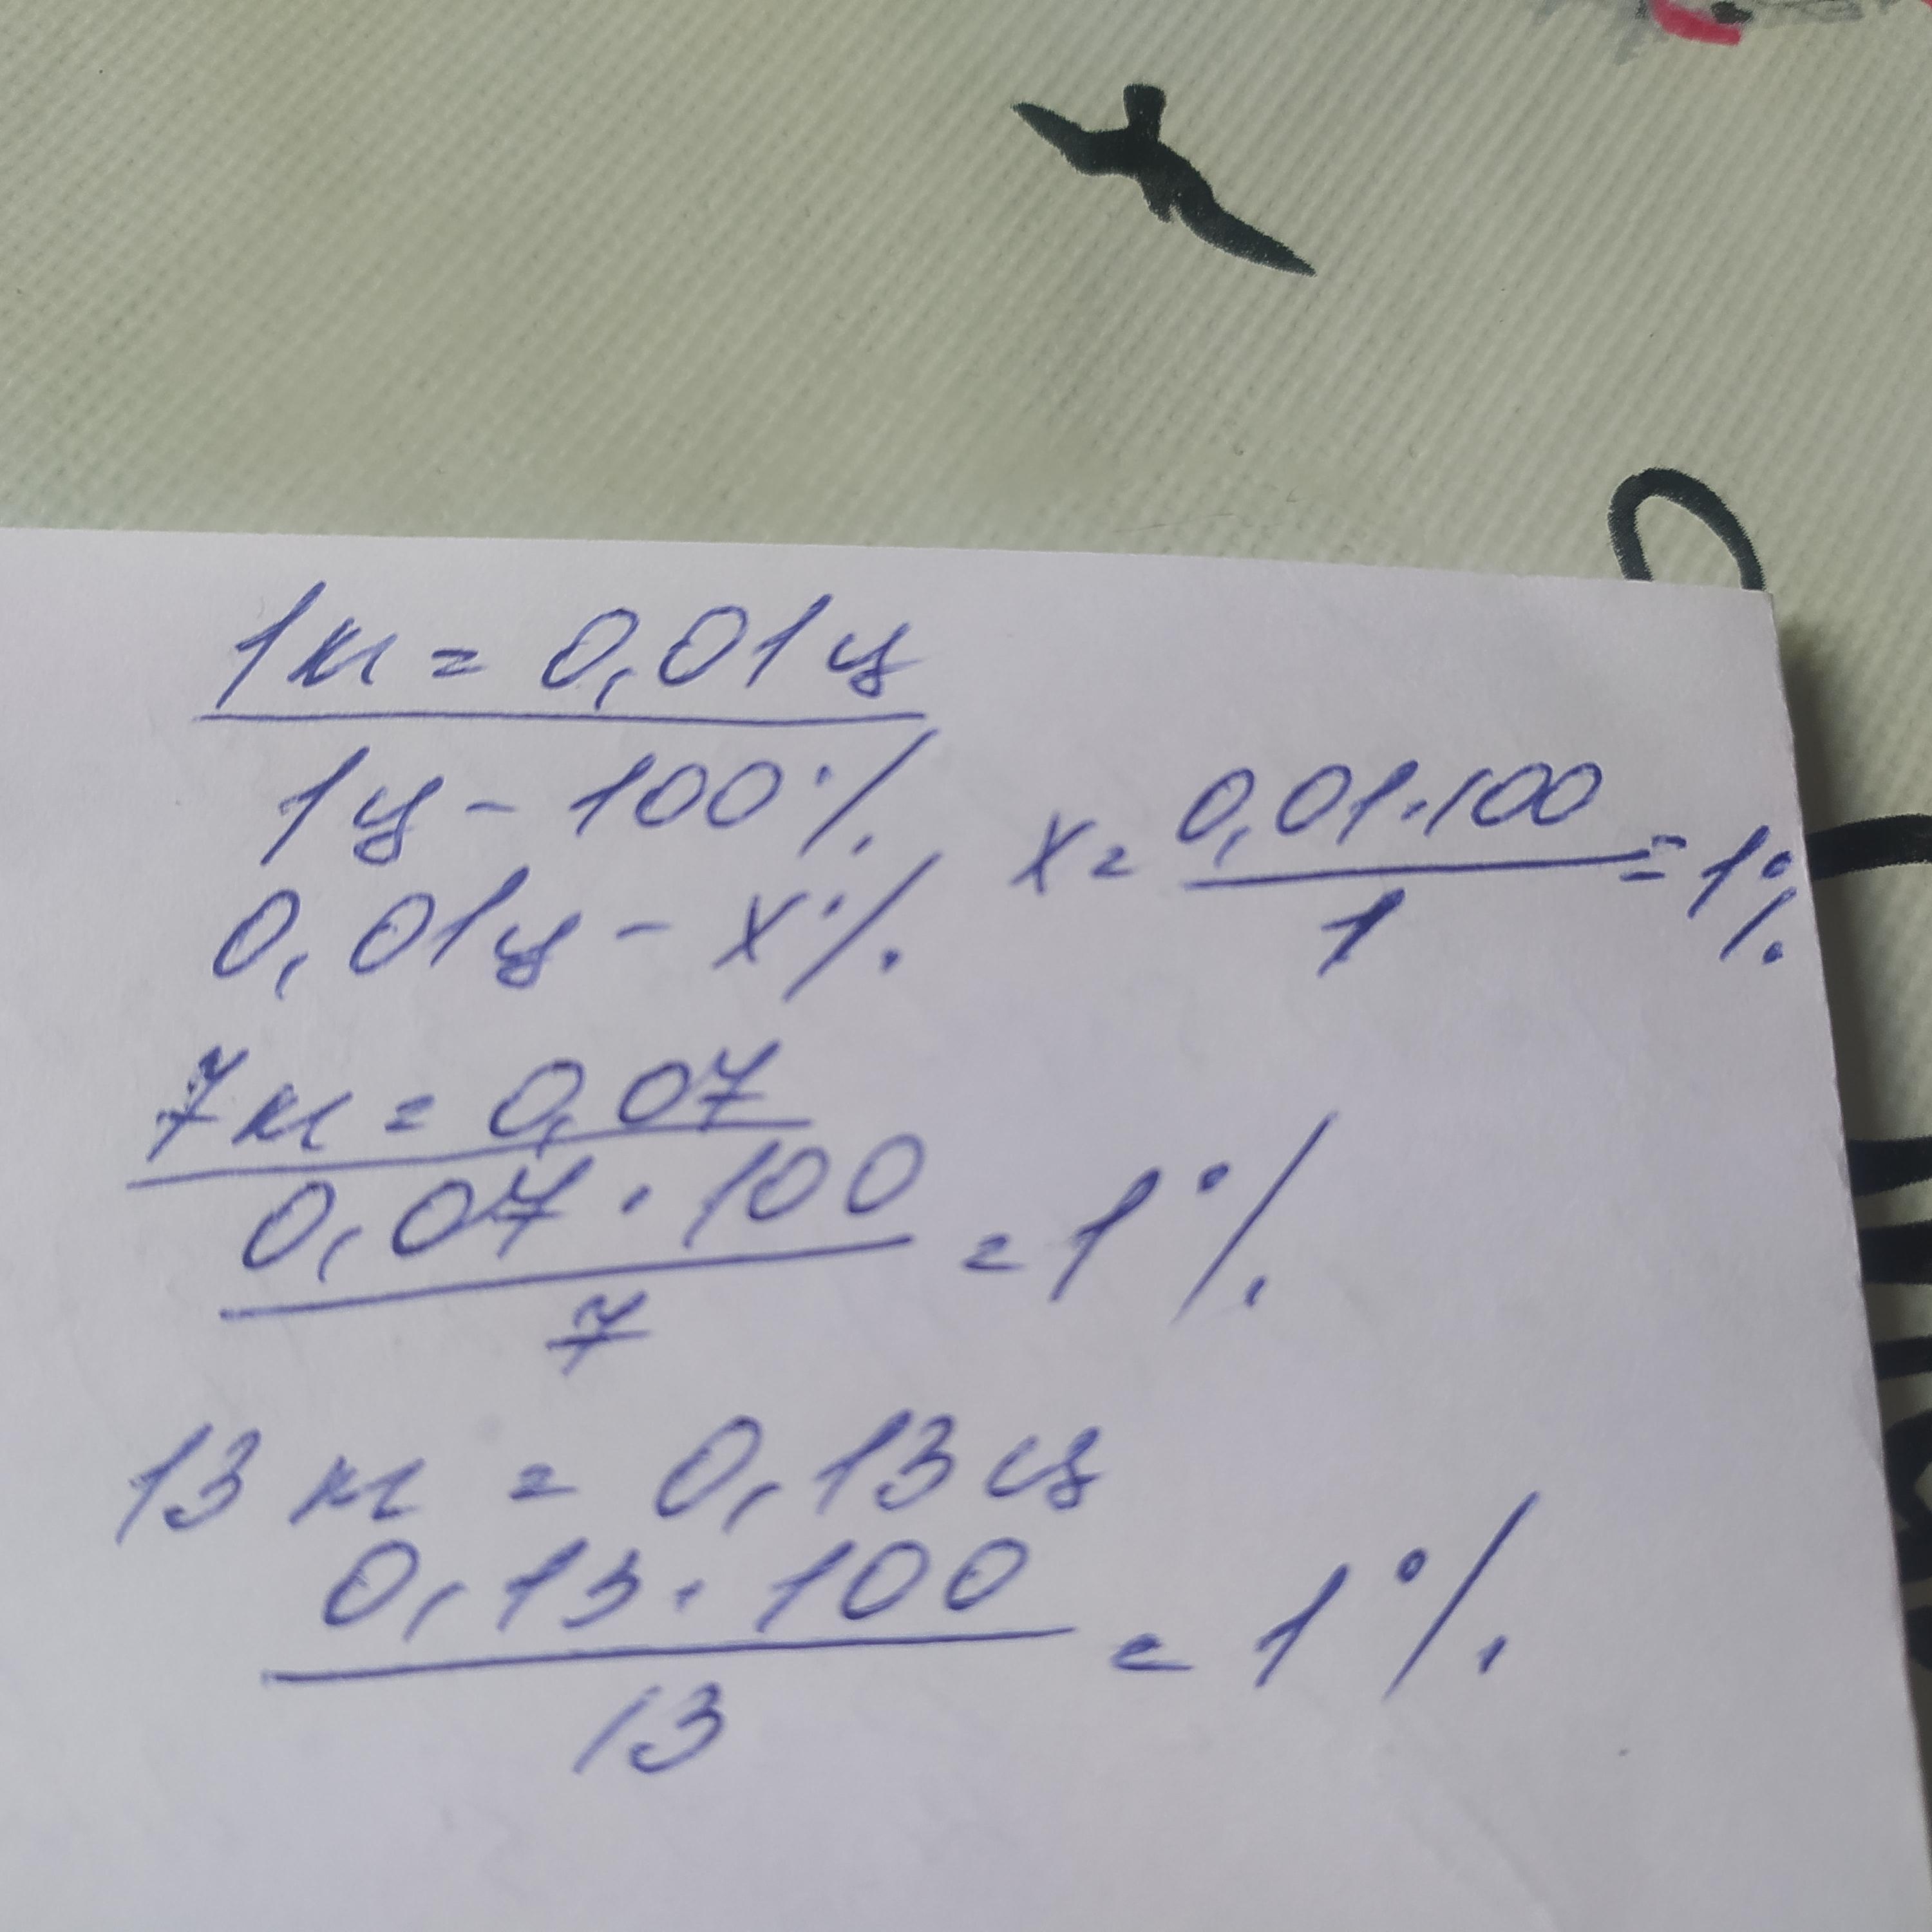 1кг = 0,01ц
1ц - 100%
0,01ц - х%
х = 0,01·100 / 1 = 1%
7кг = 0,07
0,07 · 100 / 7 = 1%
13 кг = 0,13ц
0,13 · 100 / 13 = 1%